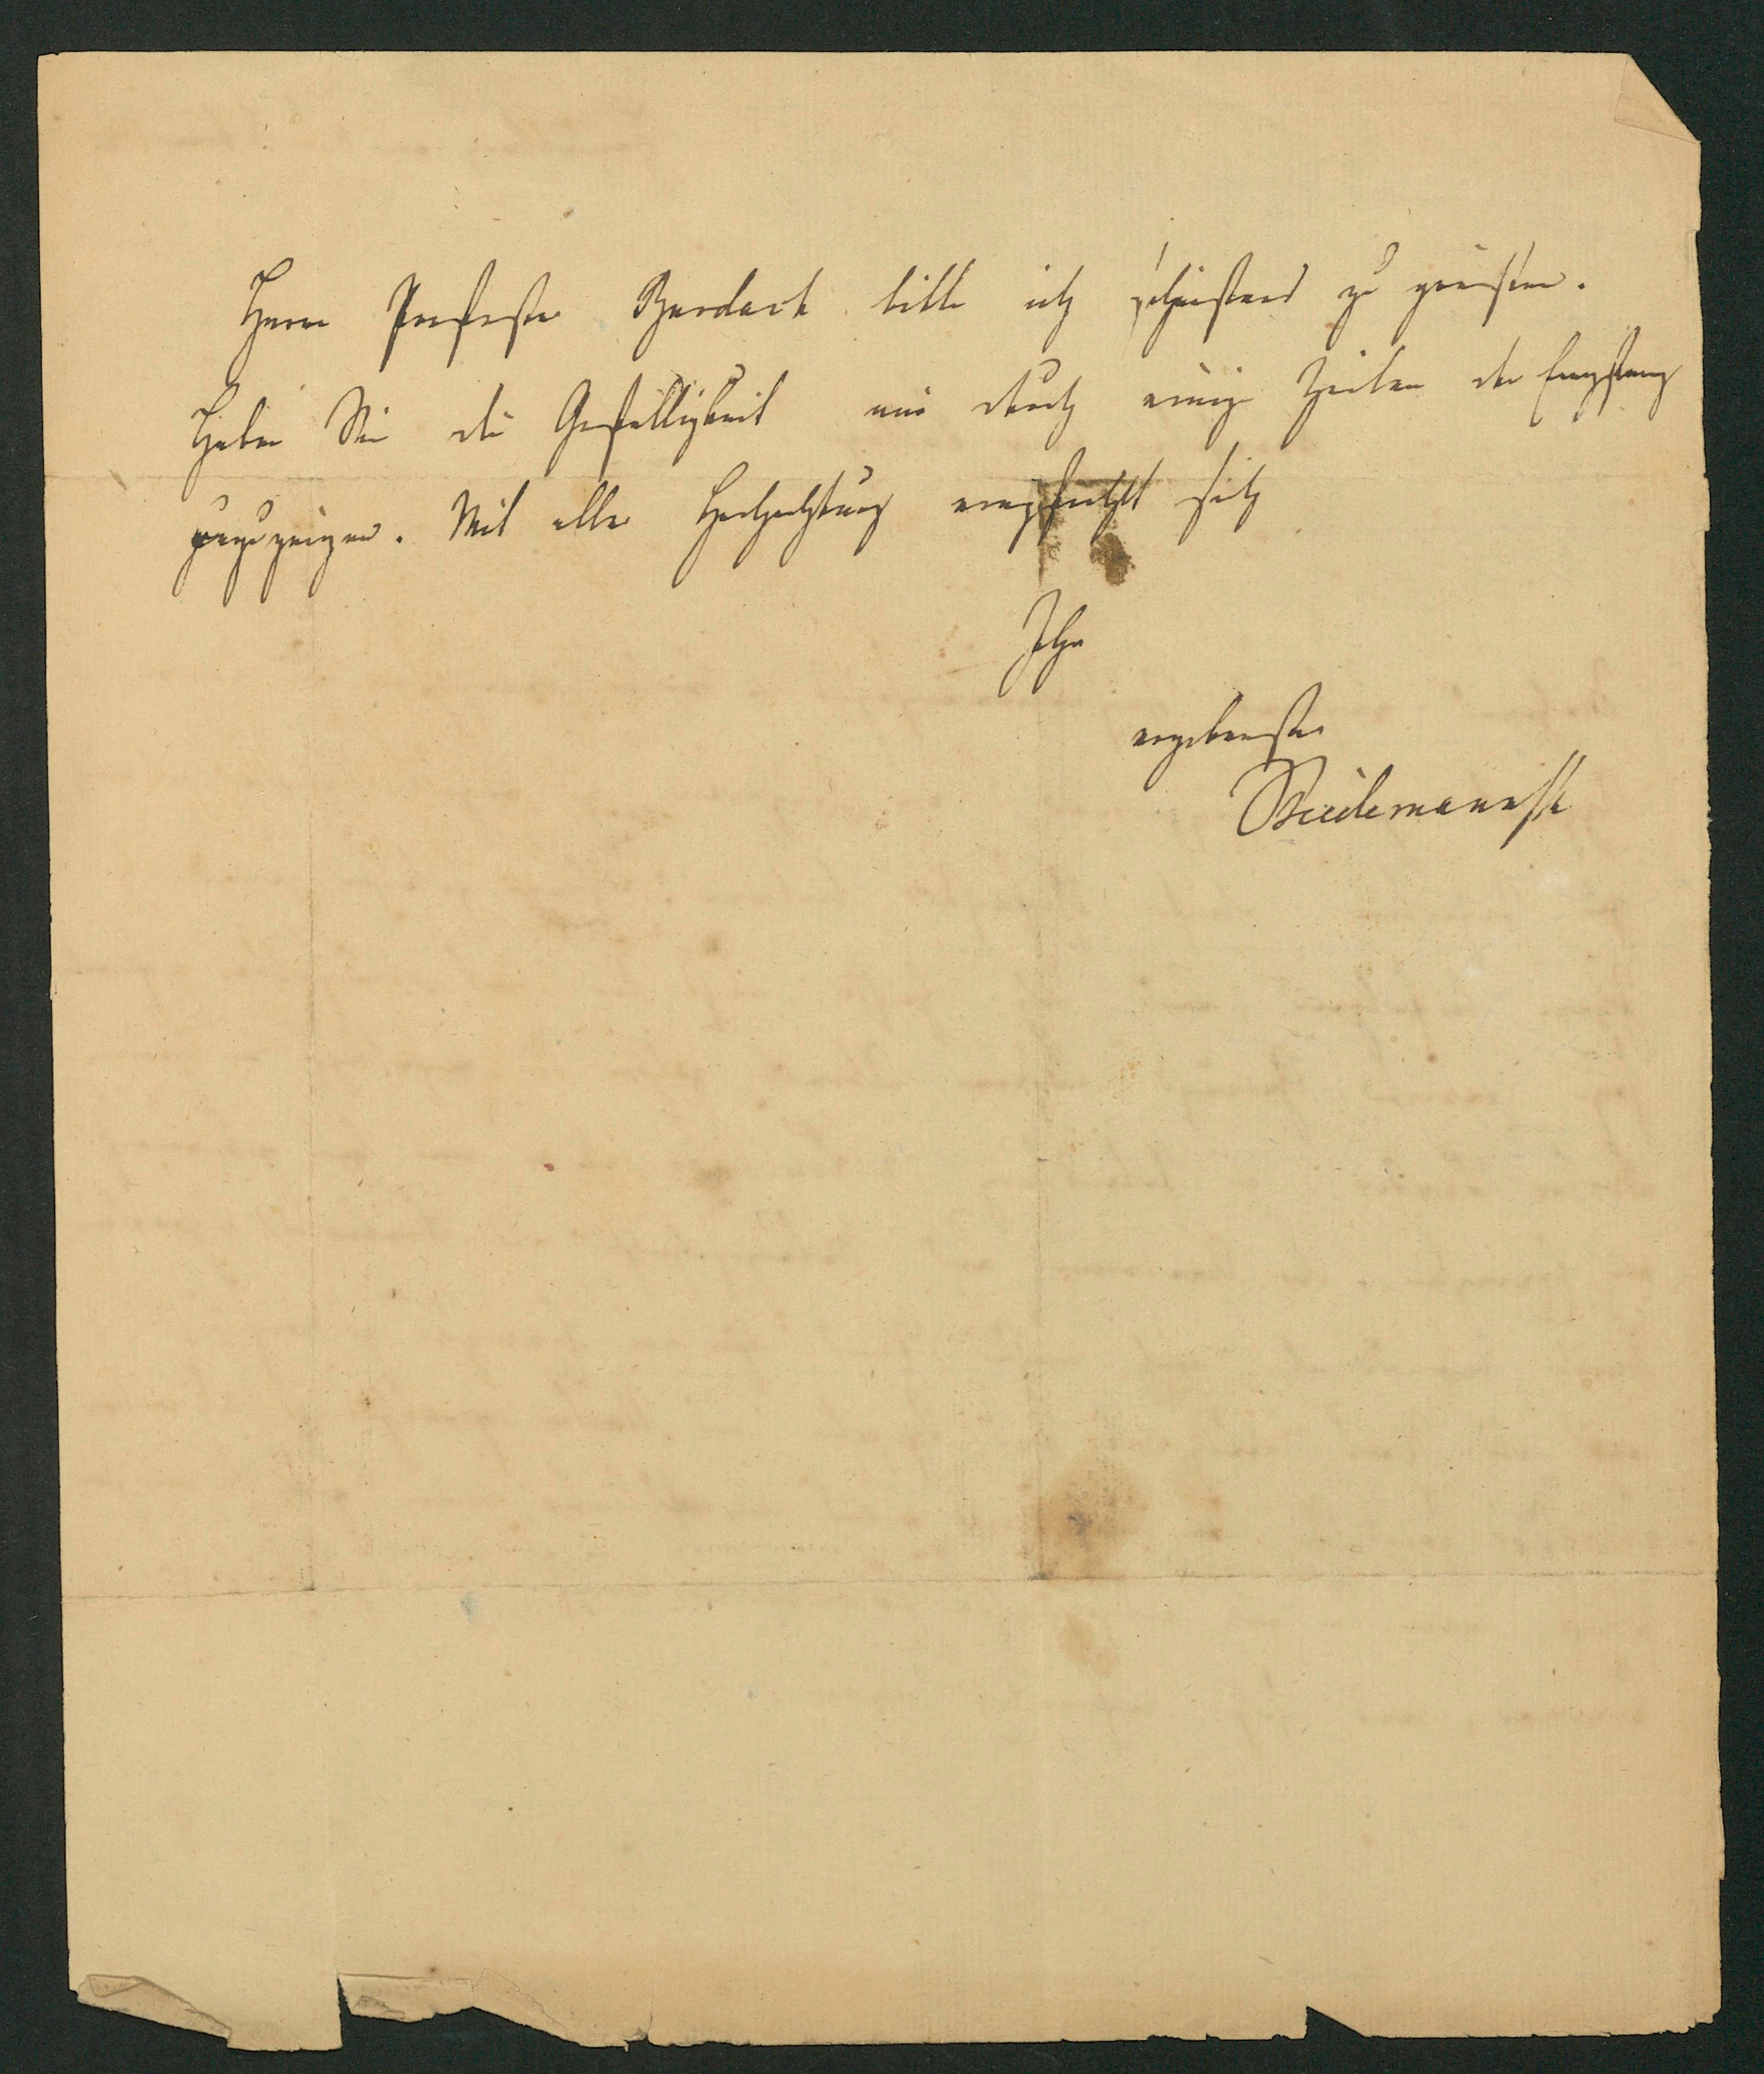 Herrn Professor Burdach bitte ich schönstens zu grüssen.
Haben Sie die Gefälligkeit mir durch einige Zeilen den Empfang
anzuzeigen. Mit aller Hochachtung empfiehlt sich
Ihr
ergebenster